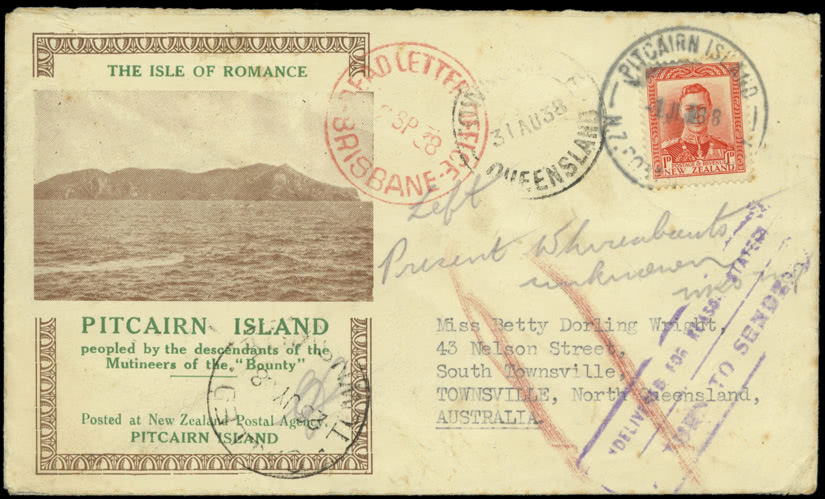 THE ISLE OF ROMANCE
PITCAIRN ISLAND
peopled by the descendants of the
Mutineers of the "Bounty"
Posted at New Zealand Postal Agency
PITCAIRN ISLAND
DEAD LETTER OFFICE
SP 38
BRISBANE
31 AU 38
QUEENSLAND
PITCAIRN ISLAND
JL 38
N.Z.
1D
1D
NEW ZEALAND
Left
Present Whereabouts
unknown
Miss Betty Dorling Wright,
43 Nelson Street,
South Townsville,
TOWNSVILLE, North Queensland,
AUSTRALIA.
FOR REASON STATED
TO SENDER